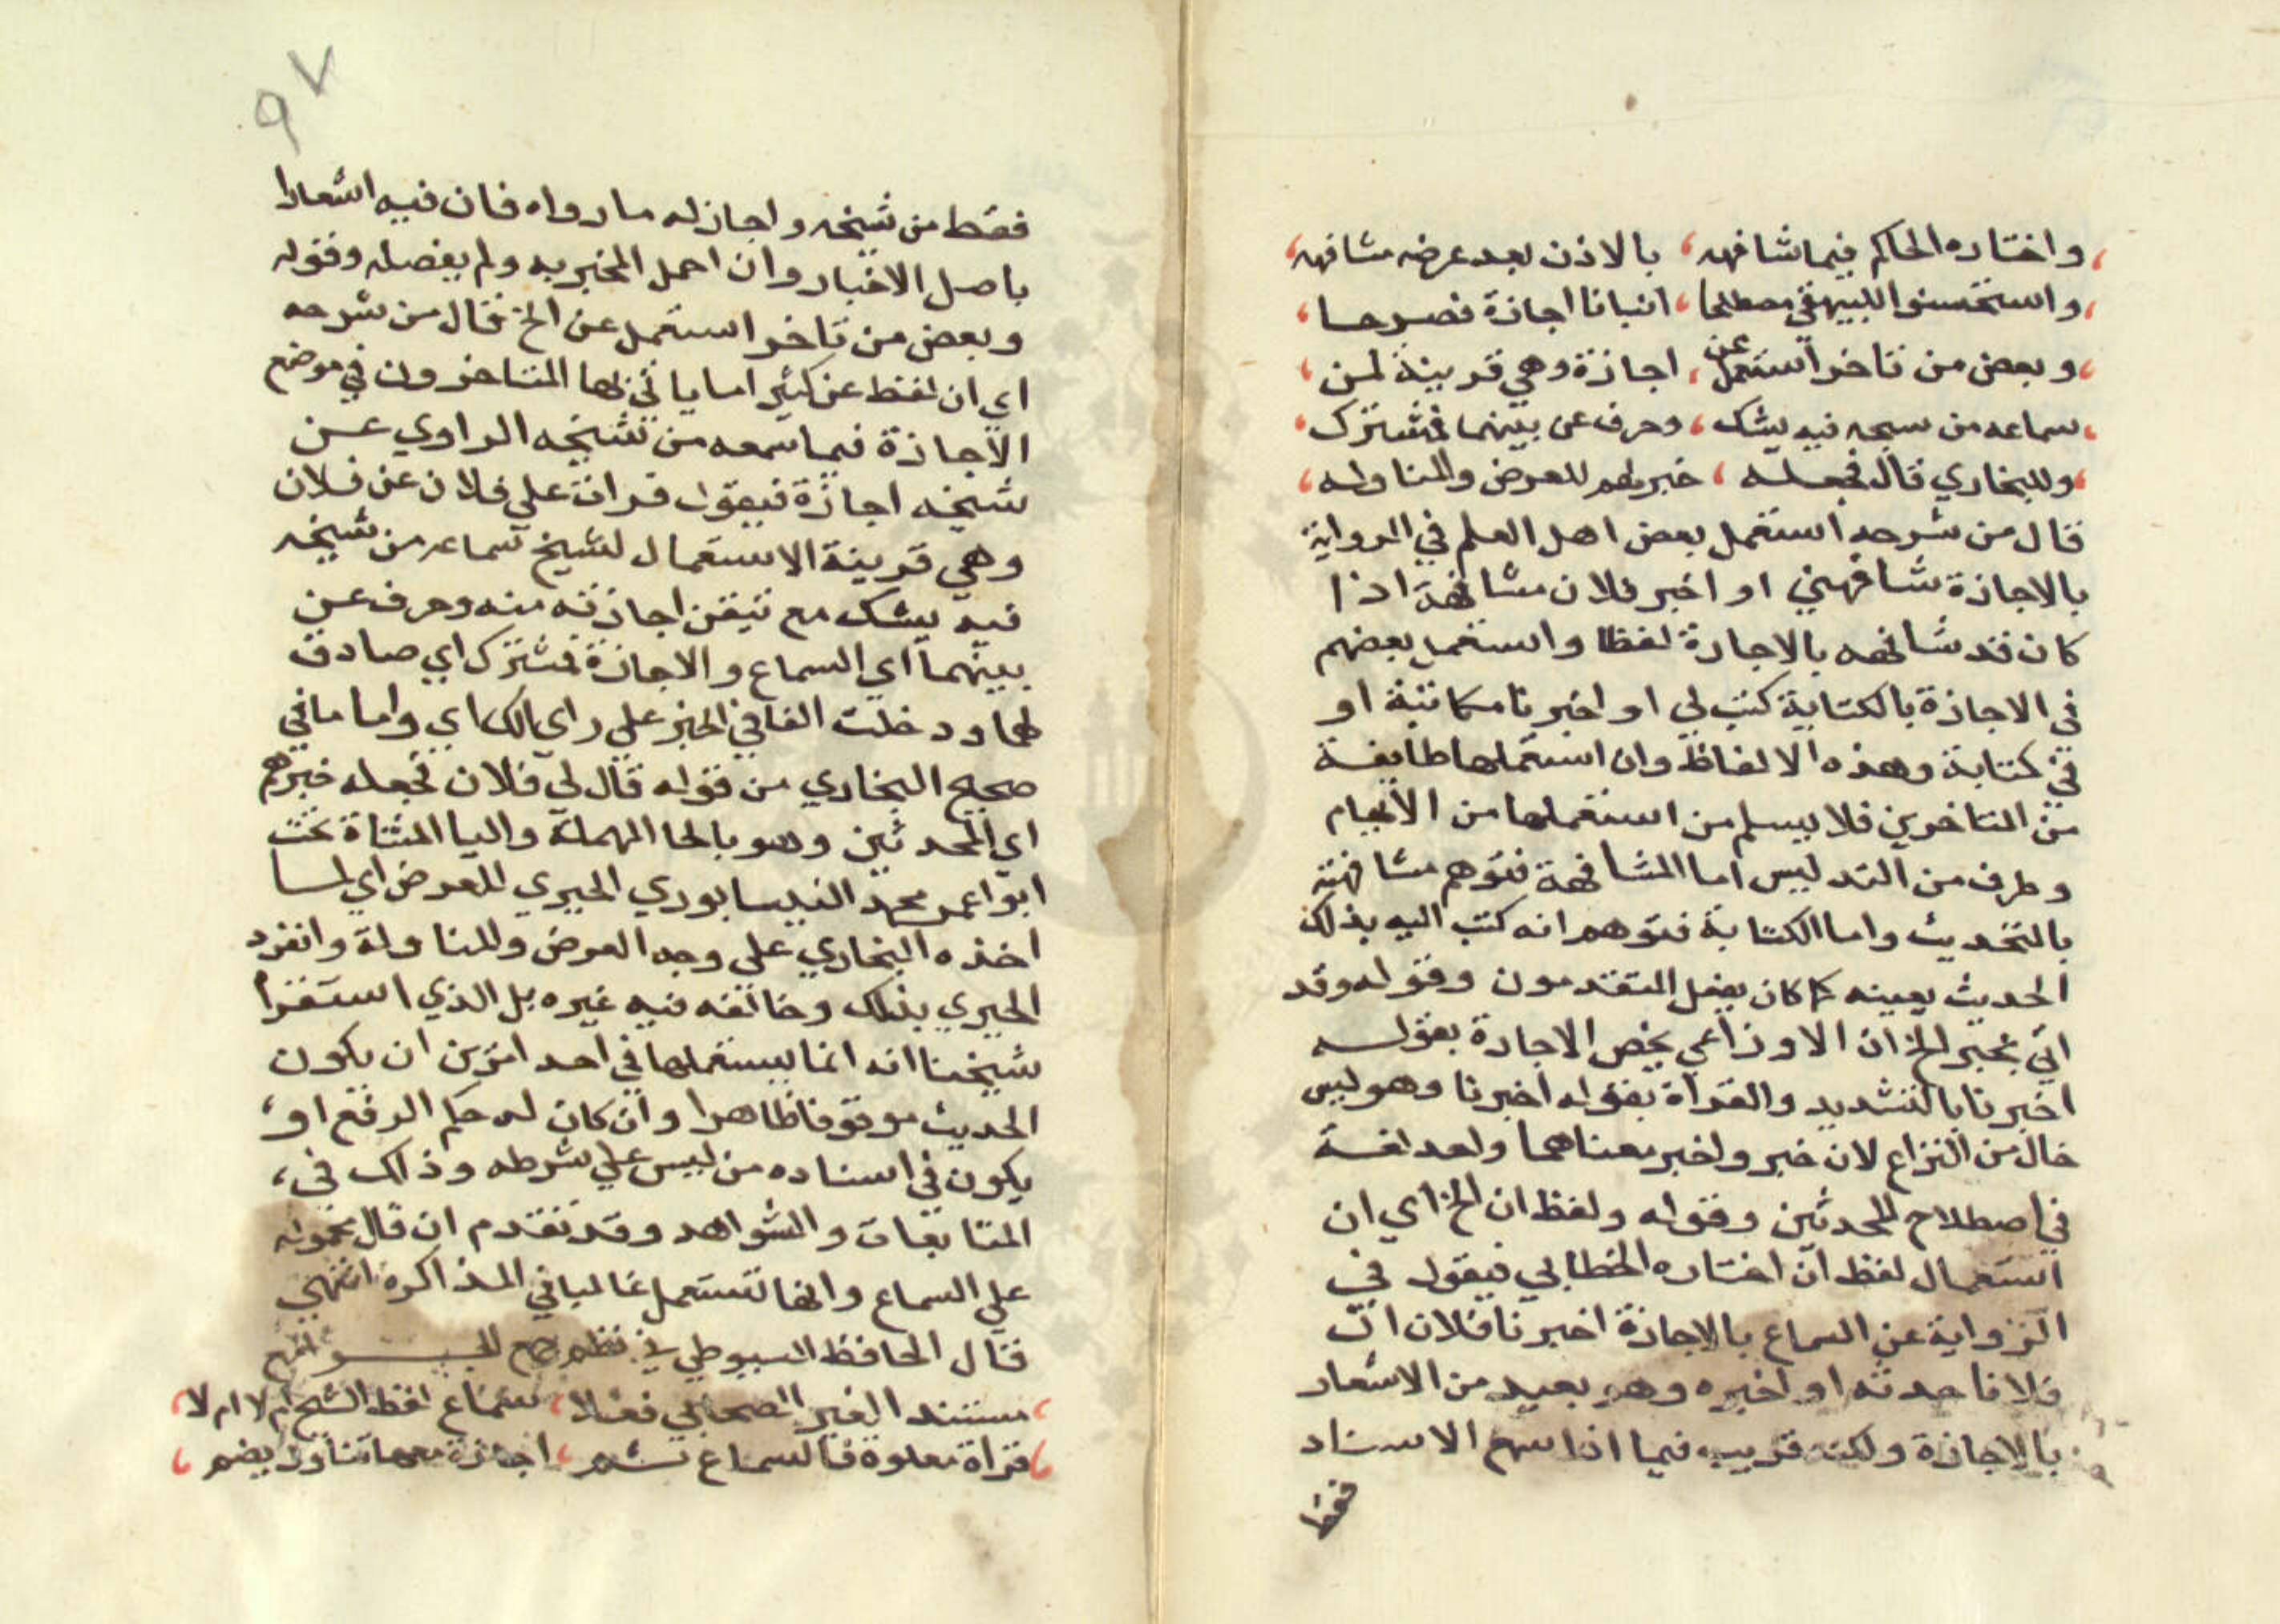 واختاره الحاكم فيما شافهه ، بالاذن بعد عرضه مشافهه
واستحسنوا للبيهقي مصطلحا ، انبانا اجازة فصرحا
وبعض من تاخر استعمل عن ، اجازة وهي قريبة لمن
سماعه من سيخه فيه يشك ، وحرف عن بينهما فمشترك
وللبخاري قال لي فجعله ، خبريهم للعرض والمناوله
قال من شرحه استعمل بعض اهل العلم في الرواية
بالاجازة شافهني او اخبر فلان مشافهة اذا
كان قد شافهه بالاجازة لفظا واستعمل بعضهم
في الاجازة بالكتابة كتب لي او اخبرنا مكاتبة او
في كتابة وهذه الالفاظ وان استعملها طايفة
من المتاخرين فلا يسلم من استعملها من الابهام
وطرف من التدليس اما المشافهة فتوهم مشافهته
بالتحديث واما الكتابة فتوهم انه كتب اليه بذلك
الحديث بعينه كما كان يفعل المتقدمون وقوله وقد
اتي بخبر الخ ان الاوزاعي يخص الاجازة بقوله
اخبرنا بالتشديد والقراة بقوله اخبرنا وهو ليس
خال من النزاع لان خبر واخبر بمعناهما واحد لغة
في اصطلاح المحدثين وقوله ولفظ ان الخ اي ان
استعمال لفظ ان اختاره الخطابي فيقول في
الرواية عن السماع بالاجازة اخبرنا فلان ان
فلانا حدثه او اخبره وهو بعيد من الاشعار
بالاجازة ولكنه قريب فيما اذا سمع الاسناد
فقط
٩٧
فقط من شيخه واجاز له ما رواه فان فيه اشعارا
باصل الاخبار وان اجمل المخبر به ولم يفصله وقوله
وبعض من تاخر استعمل عن الخ قال من شرحه
اي ان لفظ عن كثير اما ياتي بها المتاخرون في موضع
الاجازة فيما سمعه من شيخه الراوي عن
شيخه اجازة فيقول قرات علي فلان عن فلان
وهي قرينة الاستعمال لشيخ سماعه من شيخه
فيه يشك مع تيقن اجازته منه وحرف عن
بينهما اي السماع والاجازة فمشترك اي صادق
لهما ودخلت الفا في الخبر علي راي الكساي واما ما في
صحيح البخاري من قوله قال لي فلان فجعله خبرهم
اي المحدثين وهو بالحا المهملة واليا المثناة تحت
ابو اعمر محمد النيسابوري الحيري للعرض اي لما
اخذه البخاري علي وجه العرض والمناولة وانفرد
الحيري بذلك وخالفه فيه غيره بل الذي استقرا
شيخنا انه انما يستعملها في احد امرين ان يكون
الحديث موقوفا ظاهرا وان كان له حكم الرفع او
يكون في اسناده من ليس علي شرطه وذلك في
المتابعات والشواهد وقد تقدم ان قال محموله
علي السماع وانها تستعمل غالبا في المذاكرة انتهي
قال الحافظ السيوطي في نظم جمع
مستند الغير الصحابي فعلا ، سماع لفظ الشيخ ام لا ام لا
قراة تعلوه فالسماع ثم ، اجازة معها تناول يضم